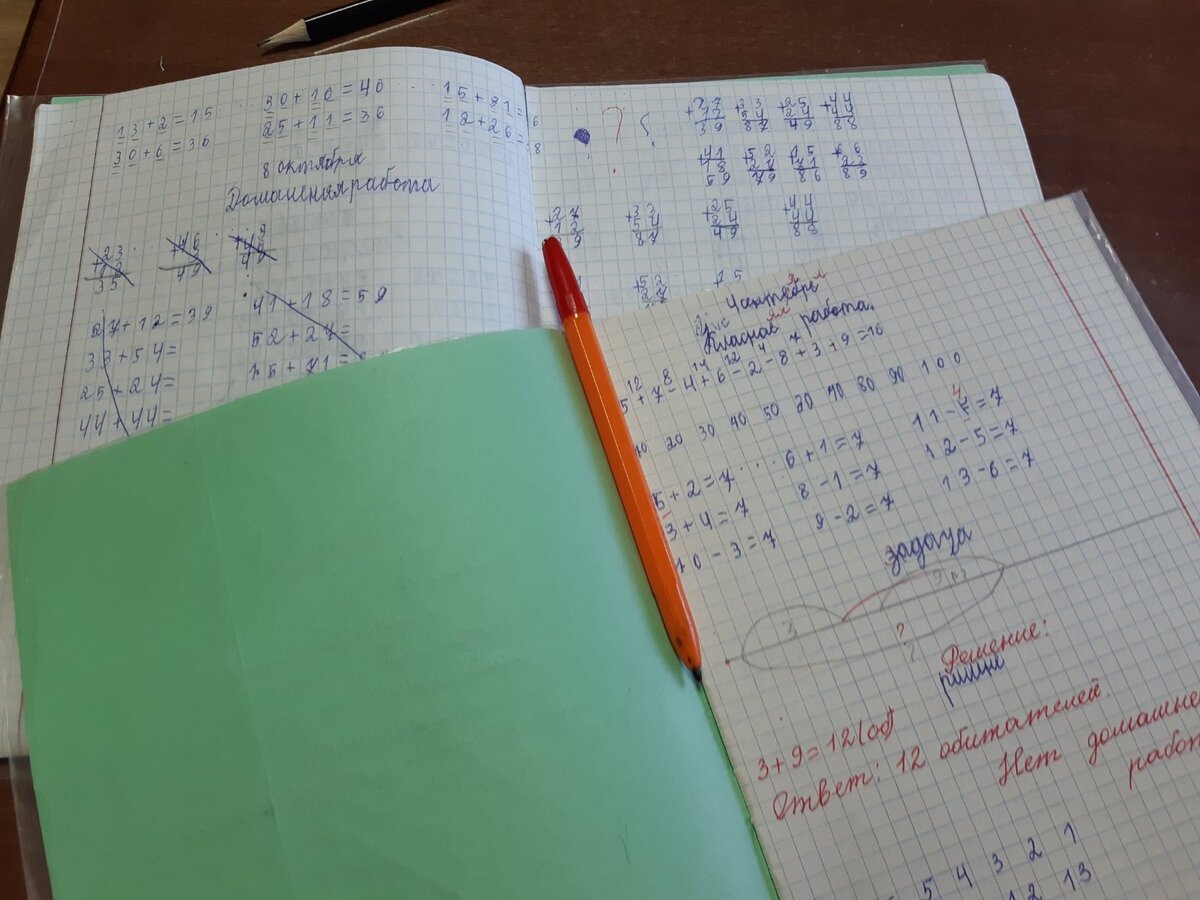 13+2=15 30+10=40 15+21=
30+6=36 25+11=36 12+26=
8 октября
Домашняя работа
+23 12 35
49
27+12=39 41+18=59
33+54= 52+27=
25+24= 15+71=
44+44=
? ?
+27 12 39 +33 54 87 +25 24 49 +44 44 88
+41 18 59 +52 27 79 +15 71 86 +66 23 89
+27 12 39 +33 54 87 +25 24 49 +44 44 88
+52 27 15
4 сентября
Класная работа.
12 8 14 12 4 7
5+7-4+6-2-8+3+9=16
10 20 30 40 50 60 70 80 90 100
5+2=7 6+1=7 11-4=7
3+4=7 8-1=7 12-5=7
10-3=7 9-2=7 13-6=7
задача
3 ?
?
Решение:
3+9=12(об)
Ответ: 12 обитателей.
Нет домашне
работ
5 4 3 2 1
12 13